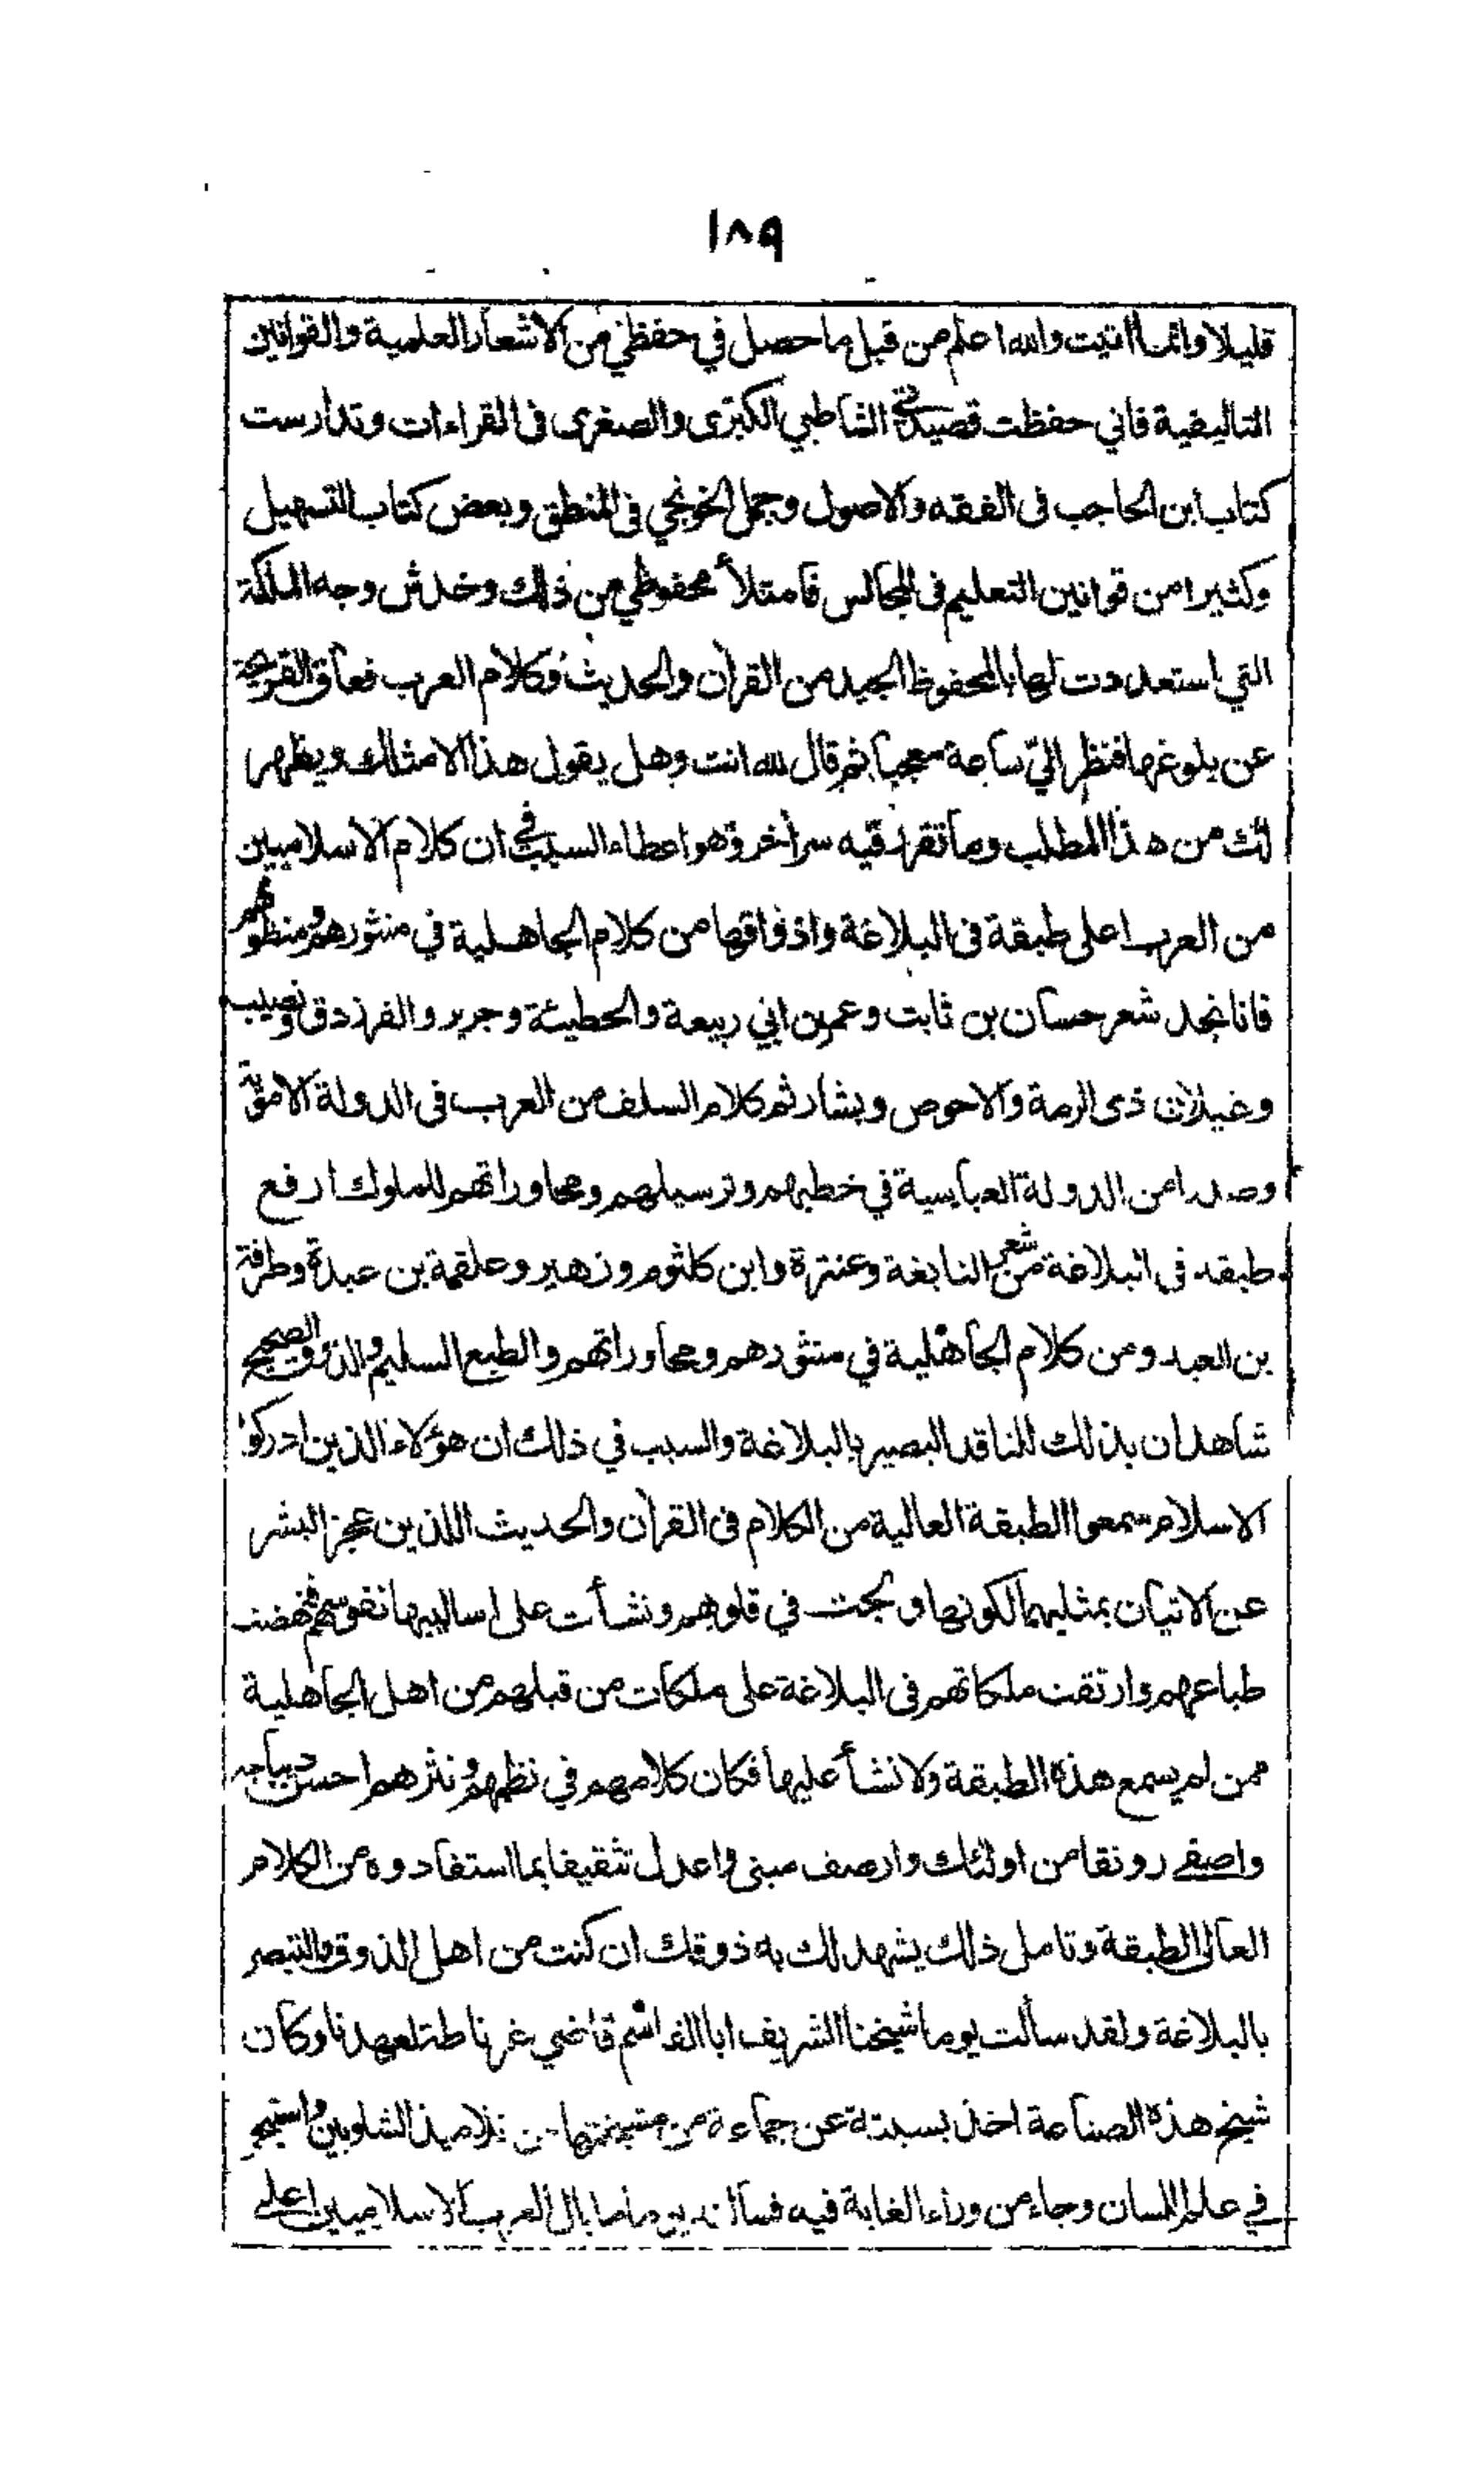 ١٨٩
قليلا وانما اتيت والله اعلم من قبل ما حصل في حفظي من الاشعار العلمية والقوانين
التاليفية فاني حفظت قصيدتي الشاطبي الكبرى والصغرى فى القراءات وتدارست
كتاب ابن الحاجب فى الفقه والاصول وجمل الخونجي فى المنطق وبعض كتاب التسهيل
وكثيرا من قوانين التعليم فى المجالس فامتلأ محفوظي من ذلك وخدش وجه الملكة
التي استعددت لها بالمحفوظ الجيد من القرآن والحديث وكلام العرب فعاق القريحة
عن بلوغها فنظر اليّ ساعة معجبا ثم قال لله انت وهل يقول هذا الا مثلك ويظهر
لك من هذا المطلب وما تقرر فيه سر آخر وهو اعطاء السبب في ان كلام الاسلاميين
من العرب اعلى طبقة فى البلاغة واذواقها من كلام الجاهلية في منثورهم ومنظومهم
فانا نجد شعر حسان بن ثابت وعمر بن ابي ربيعة والحطيئة وجرير والفرزدق ونصيب
وغيلان ذى الرمة والاحوص وبشار ثم كلام السلف من العرب فى الدولة الاموية
وصدرا من الدولة العباسية في خطبهم وترسيلهم ومحاوراتهم للملوك ارفع
طبقه فى البلاغة من شعر النابغة وعنترة وابن كلثوم وزهير وعلقمة بن عبدة وطرفة
بن العبد ومن كلام الجاهلية في منثورهم ومحاوراتهم والطبع السليم والذوق الصحيح
شاهدان بذلك للناقد البصير بالبلاغة والسبب في ذلك ان هؤلاء الذين ادركوا
الاسلام سمعوا الطبقة العالية من الكلام فى القرآن والحديث اللذين عجز البشر
عن الاتيان بمثليهما لكونها ولجت في قلوبهم ونشأت على اساليبها نفوسهم فنهضت
طباعهم وارتقت ملكاتهم فى البلاغة على ملكات من قبلهم من اهل الجاهلية
ممن لم يسمع هذه الطبقة ولا نشأ عليها فكان كلامهم في نظمهم ونثرهم احسن ديباجه
واصفى رونقا من اولئك وارصف مبنى واعدل تثقيفا بما استفادوه من الكلام
العالى الطبقة وتامل ذلك يشهد لك به ذوقك ان كنت من اهل الذوق والتبصر
بالبلاغة ولقد سألت يوما شيخنا الشريف ابا القاسم قاضي غرناطة لعهدنا وكان
شيخ هذه الصناعة اخذ بسبتة عن جماعة من مشيختها من تلاميذ الشلوبين واستبحر
في علم اللسان وجاء من وراء الغاية فيه فسألته يوما ما بال العرب الاسلاميين اعلى